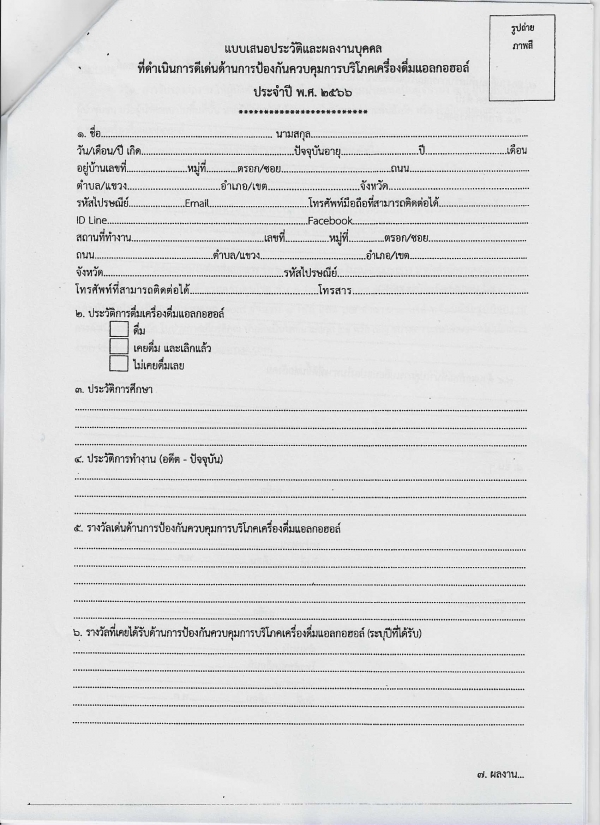 รูปถ่าย
ภาพสี
แบบเสนอประวัติและผลงานบุคคล
ที่ดำเนินการดีเด่นด้านการป้องกันควบคุมการบริโภคเครื่องดื่มแอลกอฮอล์
ประจำปี พ.ศ. ๒๕๖๖
*************************
๑. ชื่อ.................................................... นามสกุล..................................................................
วัน/เดือน/ปี เกิด..............................................ปัจจุบันอายุ.......................ปี.........................เดือน
อยู่บ้านเลขที่..................หมู่ที่.........ตรอก/ซอย.................................ถนน....................................
ตำบล/แขวง............................อำเภอ/เขต...........................จังหวัด..........................................
รหัสไปรษณีย์.................Email..............................โทรศัพท์มือถือที่สามารถติดต่อได้...........................
ID Line............................................................Facebook.....................................................
สถานที่ทำงาน........................................เลขที่.............หมู่ที่...........ตรอก/ซอย..............................
ถนน....................................ตำบล/แขวง................................อำเภอ/เขต...................................
จังหวัด......................................................รหัสไปรษณีย์.........................................................
โทรศัพท์ที่สามารถติดต่อได้.......................................โทรสาร.....................................................
๒. ประวัติการดื่มเครื่องดื่มแอลกอฮอล์
ดื่ม
เคยดื่ม และเลิกแล้ว
ไม่เคยดื่มเลย
๓. ประวัติการศึกษา
๔. ประวัติการทำงาน (อดีต - ปัจจุบัน)
๕. รางวัลเด่นด้านการป้องกันควบคุมการบริโภคเครื่องดื่มแอลกอฮอล์
๖. รางวัลที่เคยได้รับด้านการป้องกันควบคุมการบริโภคเครื่องดื่มแอลกอฮอล์ (ระบุปีที่ได้รับ)
๗. ผลงาน...